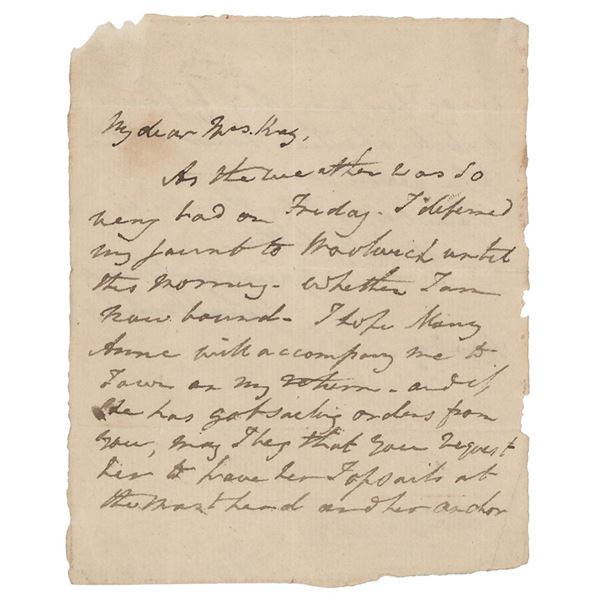 My dear Mrs. Kay,
As the weather was so
very bad on Friday - I deferred
my jaunt to Woolwich until
this morning - whether I am
now bound - I hope Mary
Anne will accompany me to
Town on my return - and if
she has got sailing orders from
you, may I beg that you request
her to have her Topsails at
the Mast head and her anchor